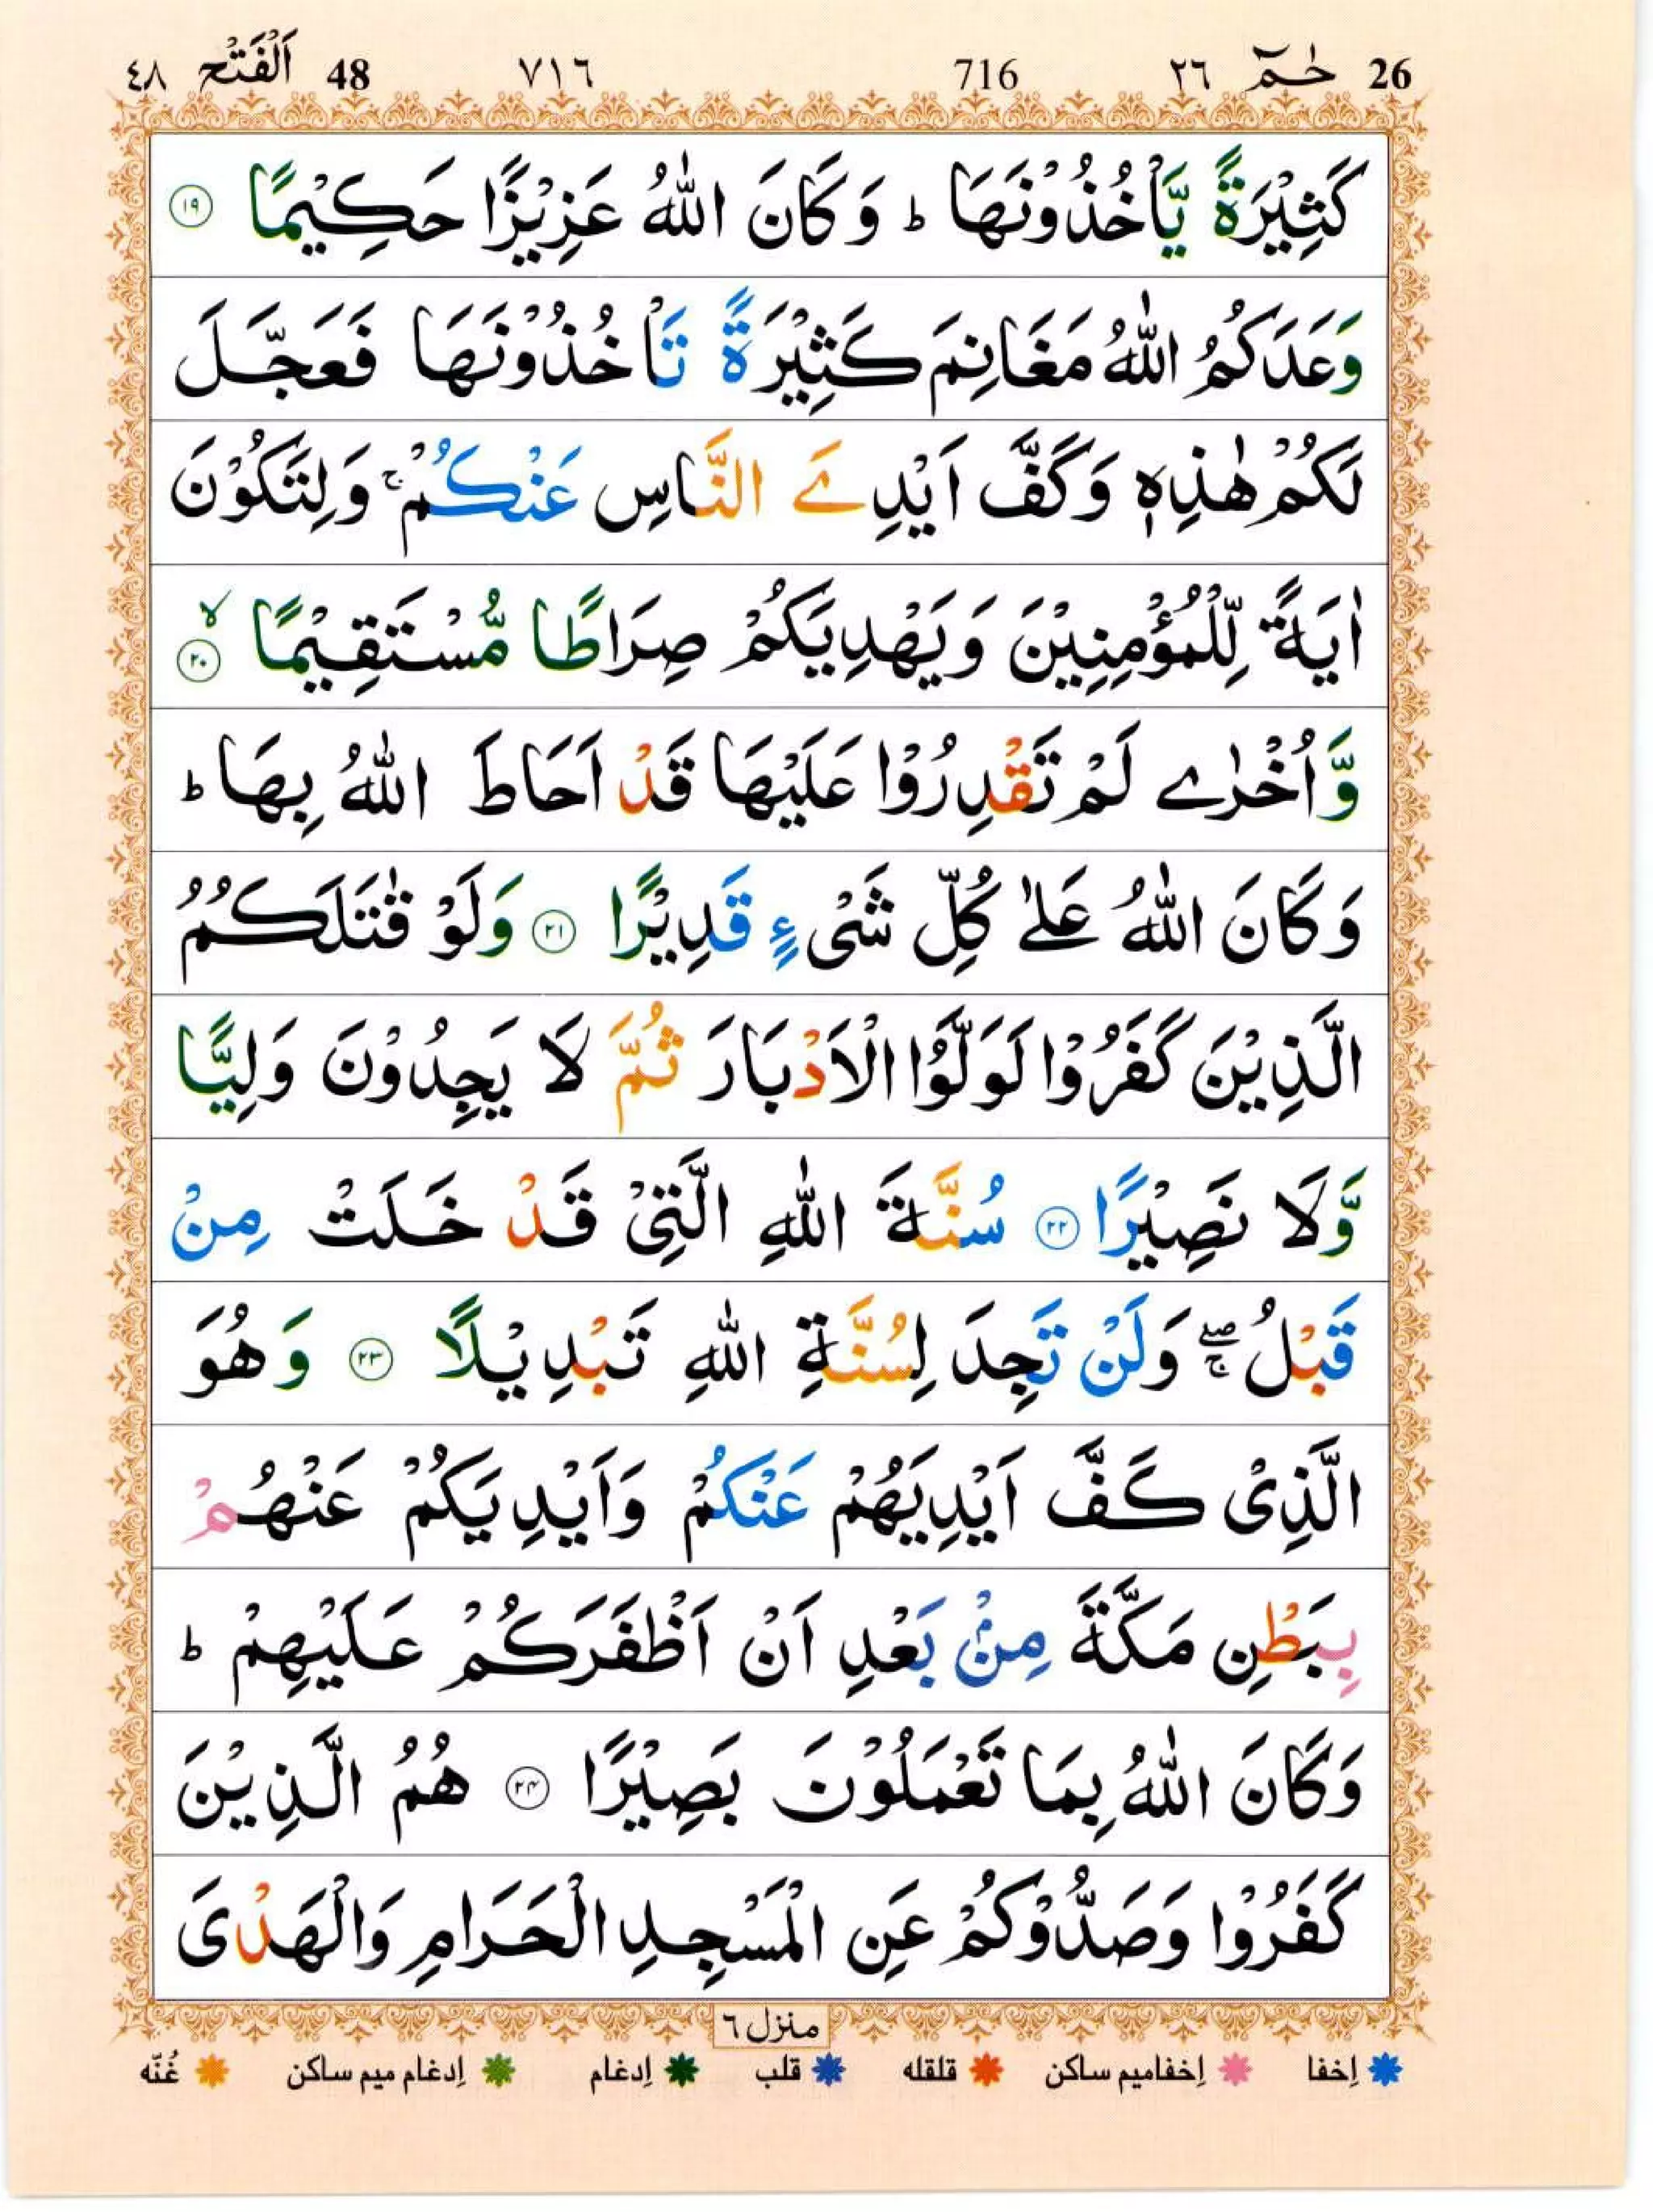 26 حٰمٓ ٢٦ 716 ٧١٦ 48 اَلْفَتْح ٤٨
كَثِيْرَةً يَّاْخُذُوْنَهَا ؕ وَكَانَ اللّٰهُ عَزِيْزًا حَكِيْمًا ۱۹
وَعَدَكُمُ اللّٰهُ مَغَانِمَ كَثِيْرَةً تَاْخُذُوْنَهَا فَعَجَّلَ
لَكُمْ هٰذِهٖ وَكَفَّ اَيْدِيَ النَّاسِ عَنْكُمْ ۚ وَلِتَكُوْنَ
اٰيَةً لِّلْمُؤْمِنِيْنَ وَيَهْدِيَكُمْ صِرَاطًا مُّسْتَقِيْمًا ۙ ۲۰
وَّاُخْرٰے لَمْ تَقْدِرُوْا عَلَيْهَا قَدْ اَحَاطَ اللّٰهُ بِهَا ؕ
وَكَانَ اللّٰهُ عَلٰے كُلِّ شَیْءٍ قَدِيْرًا ۲۱ وَلَوْ قٰتَلَكُمُ
الَّذِيْنَ كَفَرُوْا لَوَلَّوُا الْاَدْبَارَ ثُمَّ لَا يَجِدُوْنَ وَلِيًّا
وَّلَا نَصِيْرًا ۲۲ سُنَّةَ اللّٰهِ الَّتِیْ قَدْ خَلَتْ مِنْ
قَبْلُ ۖۚ وَلَنْ تَجِدَ لِسُنَّةِ اللّٰهِ تَبْدِيْلًا ۲۳ وَهُوَ
الَّذِیْ كَفَّ اَيْدِيَهُمْ عَنْكُمْ وَاَيْدِيَكُمْ عَنْهُمْ
بِبَطْنِ مَكَّةَ مِنْۢ بَعْدِ اَنْ اَظْفَرَكُمْ عَلَيْهِمْ ؕ
وَكَانَ اللّٰهُ بِمَا تَعْمَلُوْنَ بَصِيْرًا ۲۴ هُمُ الَّذِيْنَ
كَفَرُوْا وَصَدُّوْكُمْ عَنِ الْمَسْجِدِ الْحَرَامِ وَالْهَدْیَ
منزل ٦
اِخفا اِخفامیم ساکن قلقله قلب اِدغام اِدغام میم ساکن غُنّه